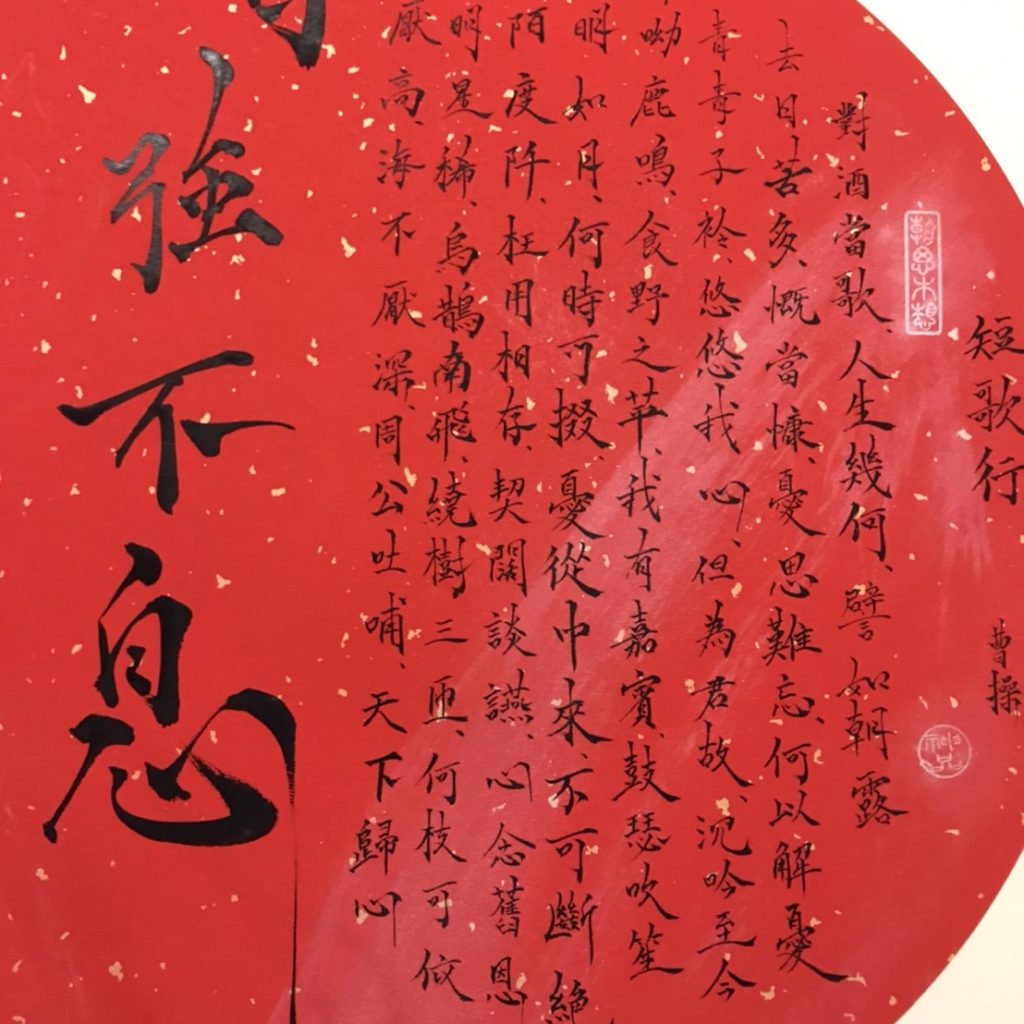 短歌行
曹操
對酒當歌、人生幾何、譬如朝露
去日苦多、慨當慷、憂思難忘、何以解憂
青青子衿、悠悠我心、但為君故、沉吟至今
呦鹿鳴、食野之苹、我有嘉賓、鼓瑟吹笙
明如月、何時可掇、憂從中來、不可斷絕
陌度阡、枉用相存、契闊談讌、心念舊恩
明星稀、烏鵲南飛、繞樹三匝、何枝可依
厭高、海不厭深、周公吐哺、天下歸心
強不息